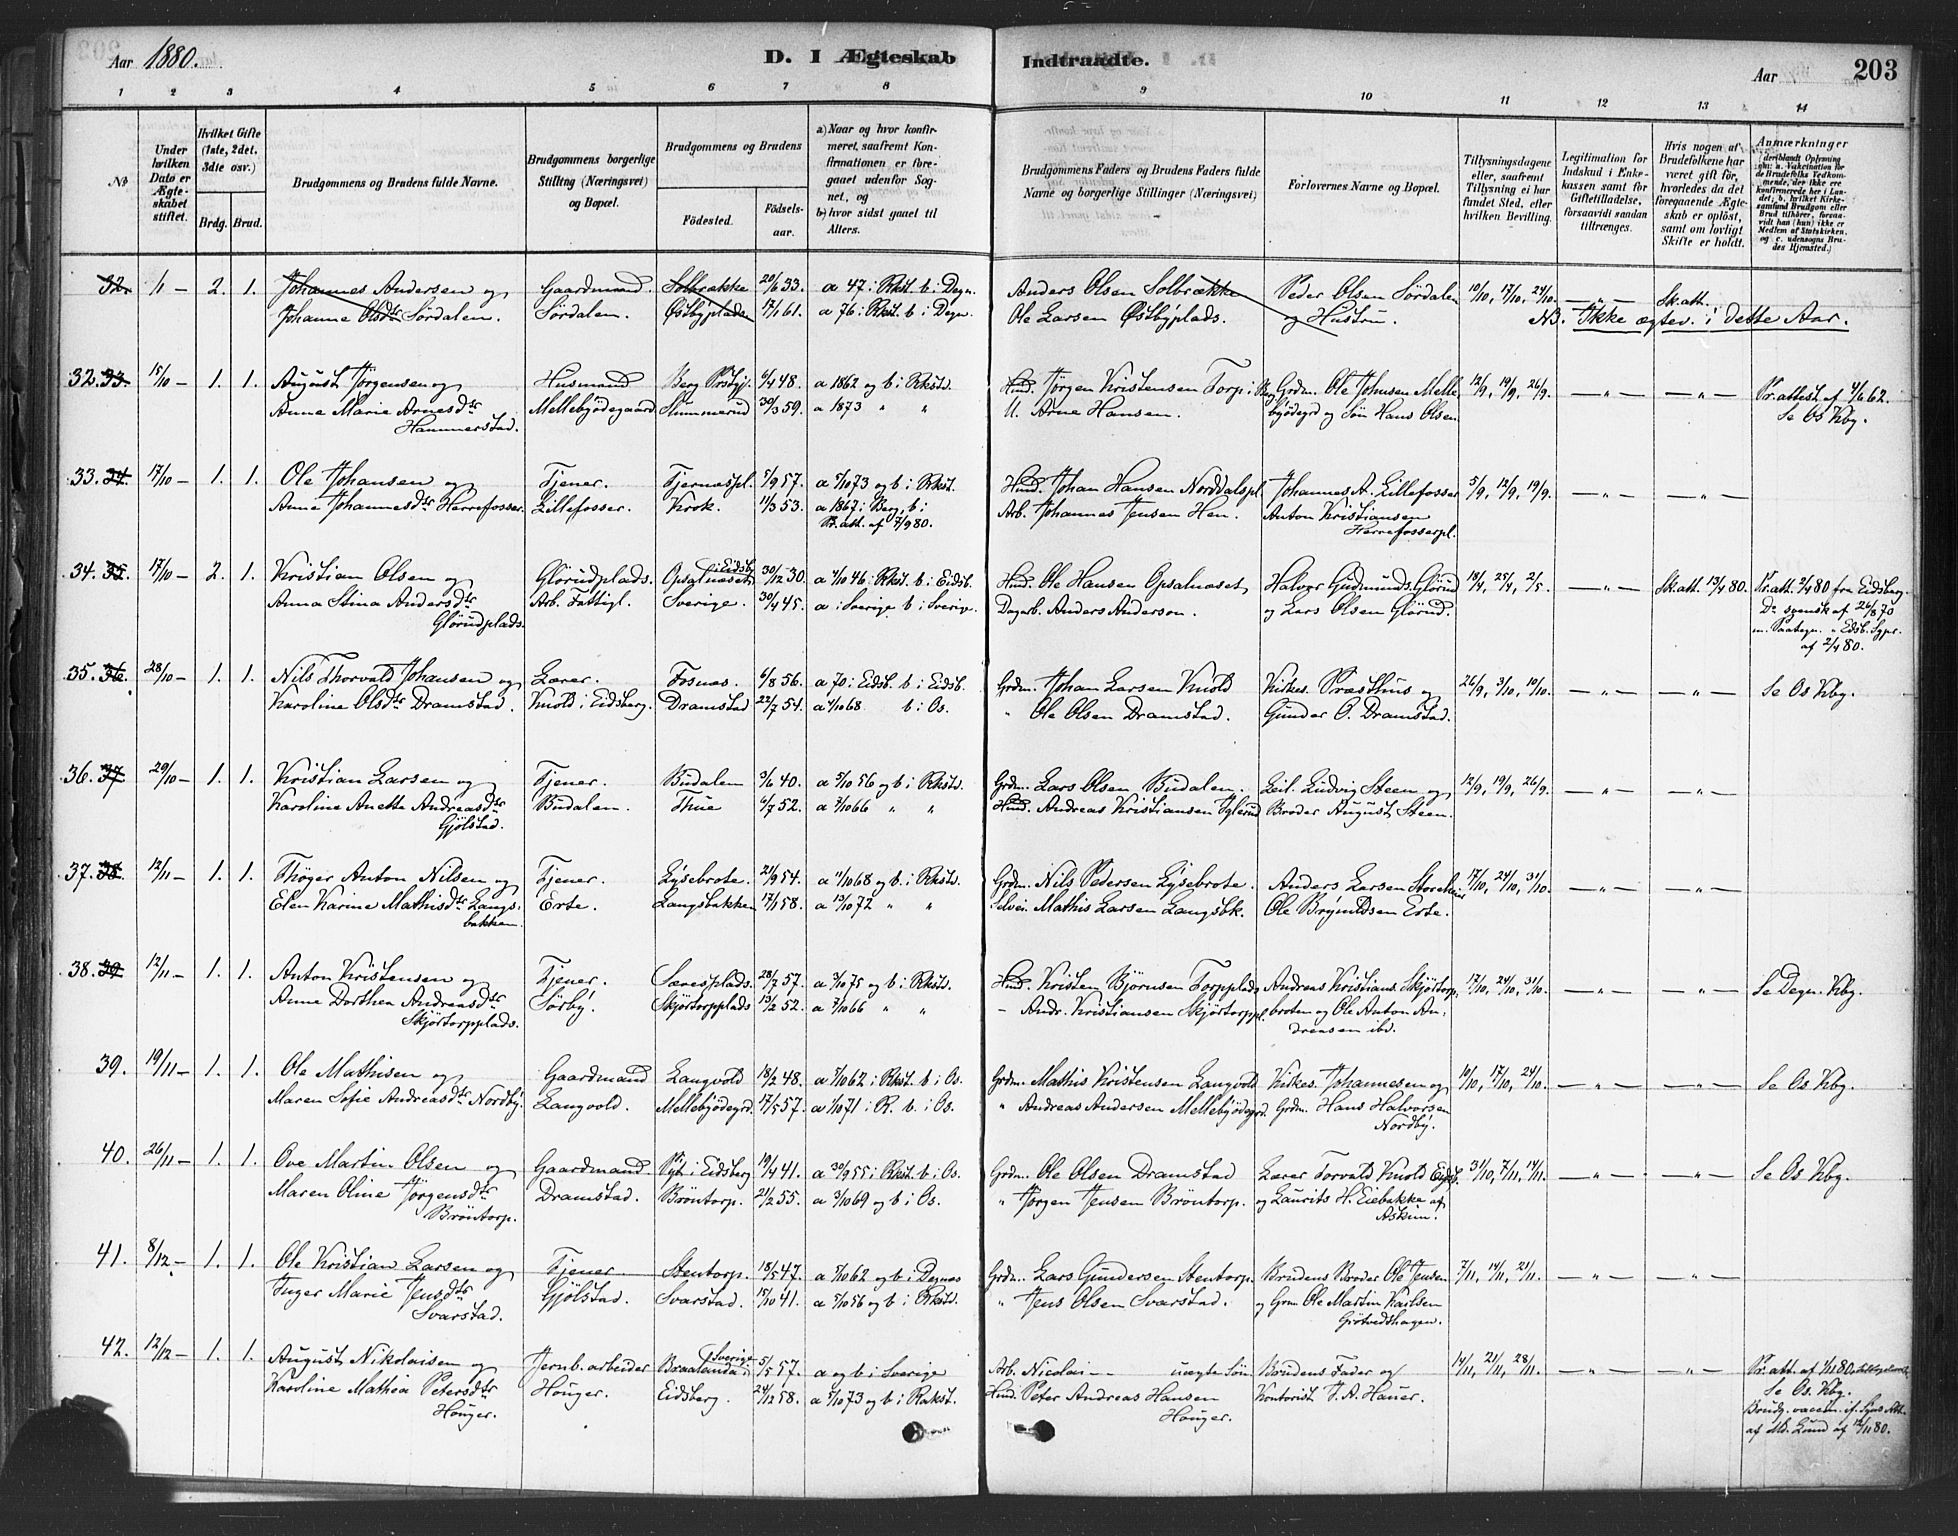 Aar 1880.
D. I Ægteskab Indtraadte.
Aar 203
1 2 3 4 5 6 7 8 9 10 11 12 13 14
No
Under hvilken Dato er Ægteskabet stiftet.
Hvilket Gifte (1ste, 2det, 3die osv.)
Brdg. Brud.
Brudgommens og Brudens fulde Navne.
Brudgommens borgerlige Stilling (Næringsvei) og Bopæl.
Brudgommens og Brudens
Födested. Födselsaar.
a) Naar og hvor konfirmeret, saafremt Konfirmationen er foregaaet udenfor Sognet, og
b) hvor sidst gaaet til Alters.
Brudgommens Faders og Brudens Faders fulde Navne og borgerlige Stillinger (Næringsvei)
Forlovernes Navne og Bopæl.
Tillysningsdagene eller, saafremt Tillysning ei har fundet Sted, efter hvilken Bevilling.
Legitimation for Indskud i Enkekassen samt for Giftetilladelse, forsaavidt saadan tiltrænges.
Hvis nogen af Brudefolkene har været gift før, hvorledes da det foregaaende Ægteskab er oplöst, samt om lovligt Skifte er holdt.
Anmærkninger (deriblandt Oplysning om: a. Vakcination for de Brudefolks Vedkommende, der ikke ere konfirmerede her i Landet; b. hvilket Kirkesamfund Brudgom eller Brud tilhører, forsaavidt han (hun) ikke er Medlem af Statskirken, og c. udensogns Brudes Hjemsted.)
32. 1/1 — 2. 1. Johannes Andersen og Gaardmand Solbrække 20/6 33. a 47 i Rkst. b i Degn. Anders Olsen Solbrække Peder Olsen Sördalen 10/10, 17/10, 24/10. — „ — Sk.att.
Johanne Olsdtr Sördalen. Sördalen. Östbyplads 17/1 61. a 76 i Rkst. b i Degn. Ole Larsen Östbyplads. og Hustru. NB. Ikke ægtev. i dette Aar.
32. 33. 15/10 — 1. 1. August Jörgensen og Husmand Berg Prstgj. 6/4 48. a 1862 og b i Rkstd. Hmd. Jörgen Kristensen Torp i Berg Grdm. Ole Johnsen Melle- 12/9, 19/9, 26/9. — „ — — „ — Pr.attest af 4/6 62.
Anne Marie Arnesdtr Mellebjödegaard Slummerud 30/3 59. a 1873 „ „ U. Arne Hansen. bjödegrd og Sön Hans Olsen Se Os Kbg.
Hammerstad.
33. 34. 17/10 — 1. 1. Ole Johansen og Tjener. Tjernæspl. 5/9 57. a 5/10 73 og b i Rkst. Hmd. Johan Hansen Norddalspl. Johannes A. Lillefosser 5/9, 12/9, 19/9. — „ — — „ —
Anne Johannesdtr Herrefosser. Lillefosser. Krok. 11/3 53. a 1867 i Berg, b i Arb. Johannes Jensen Hen. Anton Kristiansen
Pr. att. af 7/9 80. Herrefosserpl.
34. 35. 17/10 — 2. 1. Kristian Olsen og Glörudplads. Opsalnæset i Eidsb. 30/12 30. a 4/10 46 i Rkst. b i Eidsb. Hmd. Ole Hansen Opsalnæset Halvor Gudmunds. Glörud 18/4, 25/4, 2/5. — „ — Sk.att. 13/4 80. Pr.att. 2/4 80 fra Eidsberg.
Anna Stina Andersdtr Arb. Fattigl. Sverige. 30/4 45. a i Sverige b i Sverige. Dagarb. Anders Anderson. og Lars Olsen Glörud. Do svensk af 26/8 70
Glörudplads. m. Paategn. „ Edsb. Sgpr.
af 2/4 80.
35. 36. 28/10 — 1. 1. Nils Thorvald Johansen og Lærer. Fosnæs. 6/8 56. a 70 i Eidsb. b i Eidsb. Grdm. Johan Larsen Knold Kirkes. Præsthus og 26/9, 3/10, 10/10. — „ — — „ — Se Os Kbg.
Karoline Olsdtr Dramstad. Knold i Eidsberg. Dramstad 22/7 54. a 4/10 68 b i Os. „ Ole Olsen Dramstad. Gunder O. Dramstad.
36. 37 29/10 — 1. 1. Kristian Larsen og Tjener. Budalen 3/6 40. a 5/10 56 og b i Rkstd. Grdm. Lars Olsen Budalen. Leil. Ludvig Steen og 12/9, 19/9, 26/9. — „ — — „ —
Karoline Anette Andreasdtr Budalen. Thue 6/7 52. a 7/10 66 „ „ Hmd. Andreas Kristiansen Iglerud Broder August Steen.
Gjölstad.
37. 38. 12/11 — 1. 1. Thöger Anton Nilsen og Tjener. Lysebrote. 21/9 54. a 11/10 68 og b i Rkstd. Grdm. Nils Pedersen Lysebrote. Anders Larsen Storeheier 17/10, 24/10, 31/10. — „ — — „ —
Elen Karine Mathisdtr Langs- Erte. Langsbakken 17/1 58. a 13/10 72 „ „ Selvei. Mathis Larsen Langsbk. Ole Brynildsen Erte.
bakken.
38. 39 12/11 — 1. 1. Anton Kristensen og Tjener. Særesplads. 28/7 57. a 3/10 75 og b i Rkst. Hmd. Kristen Björnsen Torpplads Andreas Kristians. Skjörtorp- 17/10, 24/10, 31/10. — „ — — „ — Se Degn. Kbg.
Anne Dorthea Andreasdtr Sörby. Skjörtorpplads 13/2 52. a 7/10 66 „ „ — Andr. Kristiansen Skjörtorppl. broten og Ole Anton An-
Skjörtorpplads. dreasen ibd.
39. 19/11 — 1. 1. Ole Mathisen og Gaardmand Langvold 18/2 48. a 7/10 62 i Rkst. b i Os. Grdm. Mathis Kristensen Langvold Kirkes. Johannesen og 10/10, 17/10, 24/10. — „ — — „ — Se Os Kbg.
Maren Sofie Andreasdtr Nordby. Langvold. Mellebjödegrd. 17/5 57. a 1/10 71 i R. b. i Os. „ Andreas Andersen Mellebjödegrd. Grdm. Hans Halvorsen
Nordby.
40. 26/11 — 1. 1. Ove Martin Olsen og Gaardmand i Eidsberg 19/4 41. a 30/9 55 i Rkst. b i Os. Grdm. Ole Olsen Dramstad Lærer Torvald Knold Eidsb. 31/10, 7/11, 14/11. — „ — — „ — Se Os Kbg.
Maren Oline Jörgensdtr Dramstad. Bröntorp. 21/2 55. a 3/10 69 og b i Os. „ Jörgen Jensen Bröntorp. og Laurits H. Eiebakke af
Bröntorp. Askim.
41. 8/12 — 1. 1. Ole Kristian Larsen og Tjener Stentorp. 18/5 47. a 5/10 62 og b i Degnes Grdm. Lars Gundersen Stentorp. Brudens Broder Ole Jensen 7/11, 14/11, 21/11. — „ — — „ —
Inger Marie Jensdtr Gjölstad. Svarstad. 15/10 41. a 5/10 56 og b i Rkstd. „ Jens Olsen Svarstad. og Grm Ole Martin Karlsen
Svarstad. Grötvedshagen.
42. 12/12 — 1. 1. August Nikolaisen og Jernb. arbeider Braalanda i Sverige 5/5 57. a og b i Sverige Arb. Nicolai — — uægte Sön Brudens Fader og 14/11, 21/11, 28/11. — „ — — „ — Pr.att. af 1/11 80.
Karoline Mathia Petersdtr Höuger. Eidsberg. 24/12 58. a 5/10 73 og b i Rakst. Hmd. Peter Andreas Hansen Kontorist T. A. Hauer. Se Os. Kbg.
Höuger. Höuger. Brudg. vaccin. if. Syns Att.
af Md. Lund af 12/11 80.